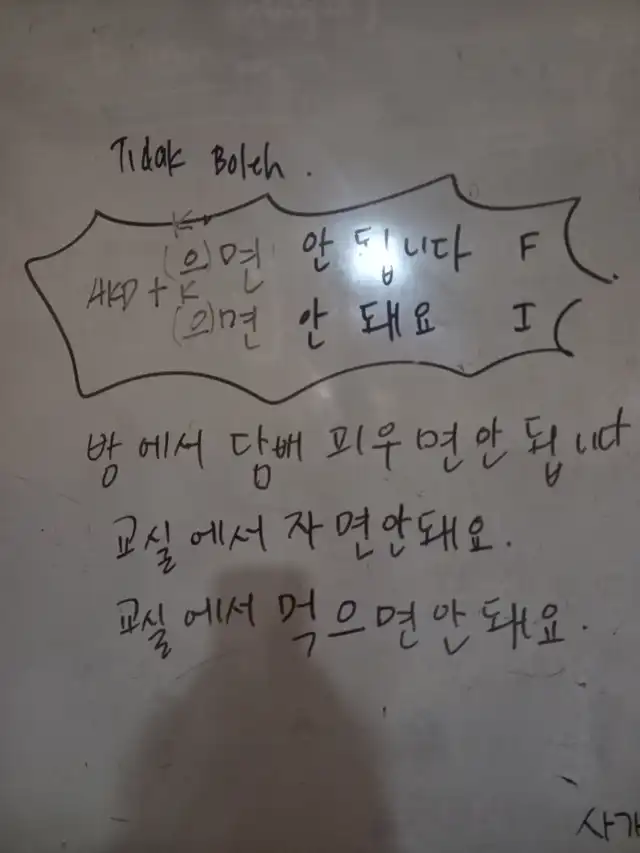 Tidak Boleh.
K
(으)면 안 됩니다 F
AKD + K
(으)면 안 돼요 I
방에서 담배 피우면안됩니다
교실에서 자면안돼요.
교실에서 먹으면안돼요.